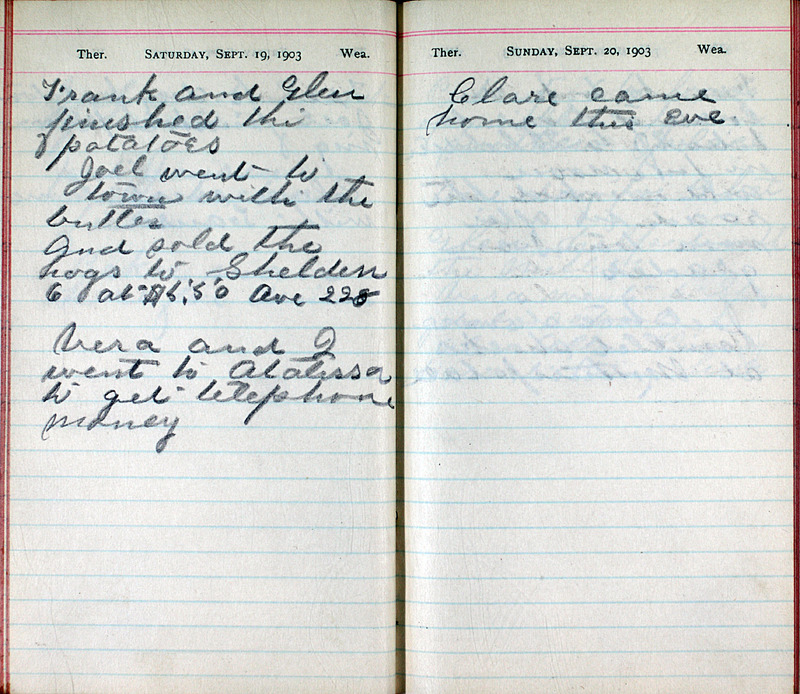 Ther. SATURDAY, SEPT. 19, 1903 Wea.
Frank and Glen
finished the
potatoes
Joel went to
town with the
butter
and sold the
hogs to Shelden
6 at $5.50 Ave 228
Vera and I
went to Atalissa
to get telephone
money
Ther. SUNDAY, SEPT. 20, 1903 Wea.
Clare came
home this eve